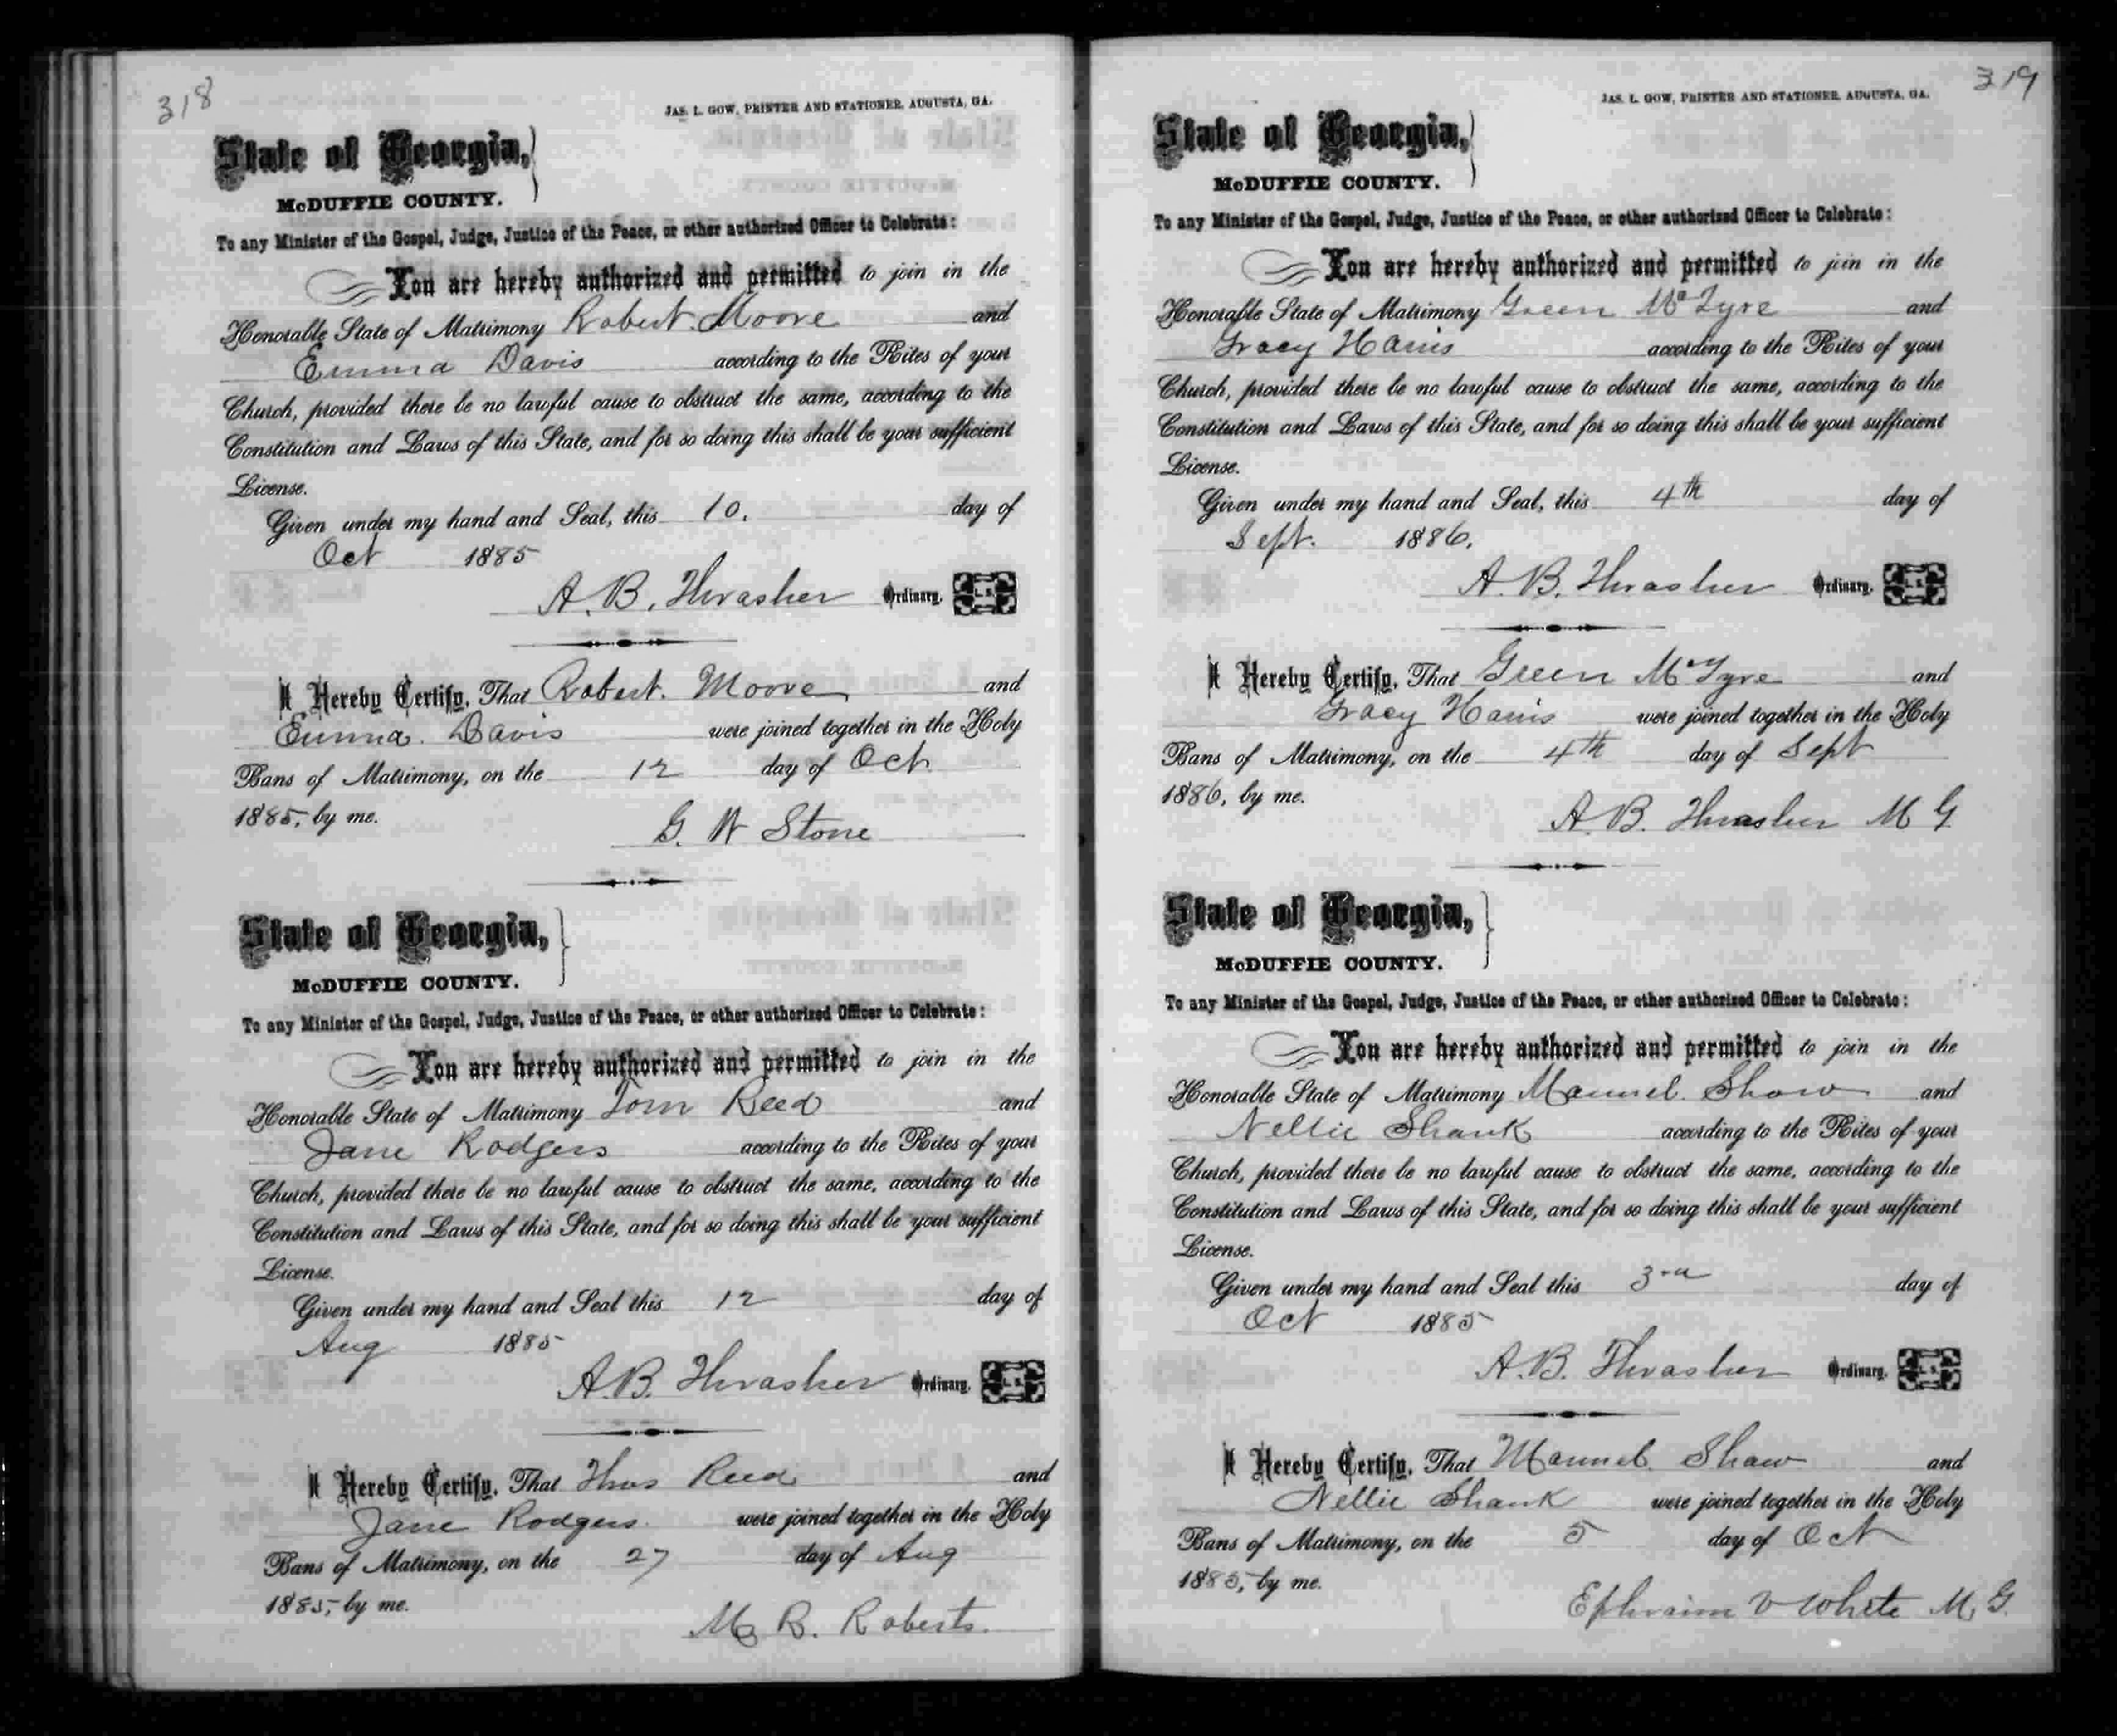 318
JAS. L. GOW, PRINTER AND STATIONER, AUGUSTA, GA.
State of Georgia,
McDUFFIE COUNTY.
To any Minister of the Gospel, Judge, Justice of the Peace, or other authorized Officer to Celebrate:
You are hereby authorized and permitted to join in the
Honorable State of Matrimony Robert Moore and
Emma Davis according to the Rites of your
Church, provided there be no lawful cause to obstruct the same, according to the
Constitution and Laws of this State, and for so doing this shall be your sufficient
License.
Given under my hand and Seal, this 10. day of
Oct 1885
A. B. Thrasher Ordinary. L. S.
I Hereby Certify, That Robert. Moore and
Emma. Davis were joined together in the Holy
Bans of Matrimony, on the 12 day of Oct
1885, by me.
G. W Stone
State of Georgia,
McDUFFIE COUNTY.
To any Minister of the Gospel, Judge, Justice of the Peace, or other authorized Officer to Celebrate:
You are hereby authorized and permitted to join in the
Honorable State of Matrimony Tom Reed and
Jane Rodgers according to the Rites of your
Church, provided there be no lawful cause to obstruct the same, according to the
Constitution and Laws of this State, and for so doing this shall be your sufficient
License.
Given under my hand and Seal this 12 day of
Aug 1885
A. B. Thrasher Ordinary. L. S.
I Hereby Certify, That Thos Reed and
Jane Rodgers. were joined together in the Holy
Bans of Matrimony, on the 27 day of Aug
1885, by me.
M. B. Roberts.
319
JAS. L. GOW, PRINTER AND STATIONER, AUGUSTA, GA.
State of Georgia,
McDUFFIE COUNTY.
To any Minister of the Gospel, Judge, Justice of the Peace, or other authorized Officer to Celebrate:
You are hereby authorized and permitted to join in the
Honorable State of Matrimony Green McTyre and
Gracy Harris according to the Rites of your
Church, provided there be no lawful cause to obstruct the same, according to the
Constitution and Laws of this State, and for so doing this shall be your sufficient
License.
Given under my hand and Seal, this 4th day of
Sept. 1886.
A. B. Thrasher Ordinary. L. S.
I Hereby Certify, That Green McTyre and
Gracy Harris were joined together in the Holy
Bans of Matrimony, on the 4th day of Sept
1886, by me.
A. B. Thrasher M G
State of Georgia,
McDUFFIE COUNTY.
To any Minister of the Gospel, Judge, Justice of the Peace, or other authorized Officer to Celebrate:
You are hereby authorized and permitted to join in the
Honorable State of Matrimony Mannel. Shaw and
Nellie Shank according to the Rites of your
Church, provided there be no lawful cause to obstruct the same, according to the
Constitution and Laws of this State, and for so doing this shall be your sufficient
License.
Given under my hand and Seal this 3rd day of
Oct 1885
A. B. Thrasher Ordinary. L. S.
I Hereby Certify, That Mannel. Shaw and
Nellie Shank were joined together in the Holy
Bans of Matrimony, on the 5 day of Oct
1885, by me.
Ephraim V White M. G.